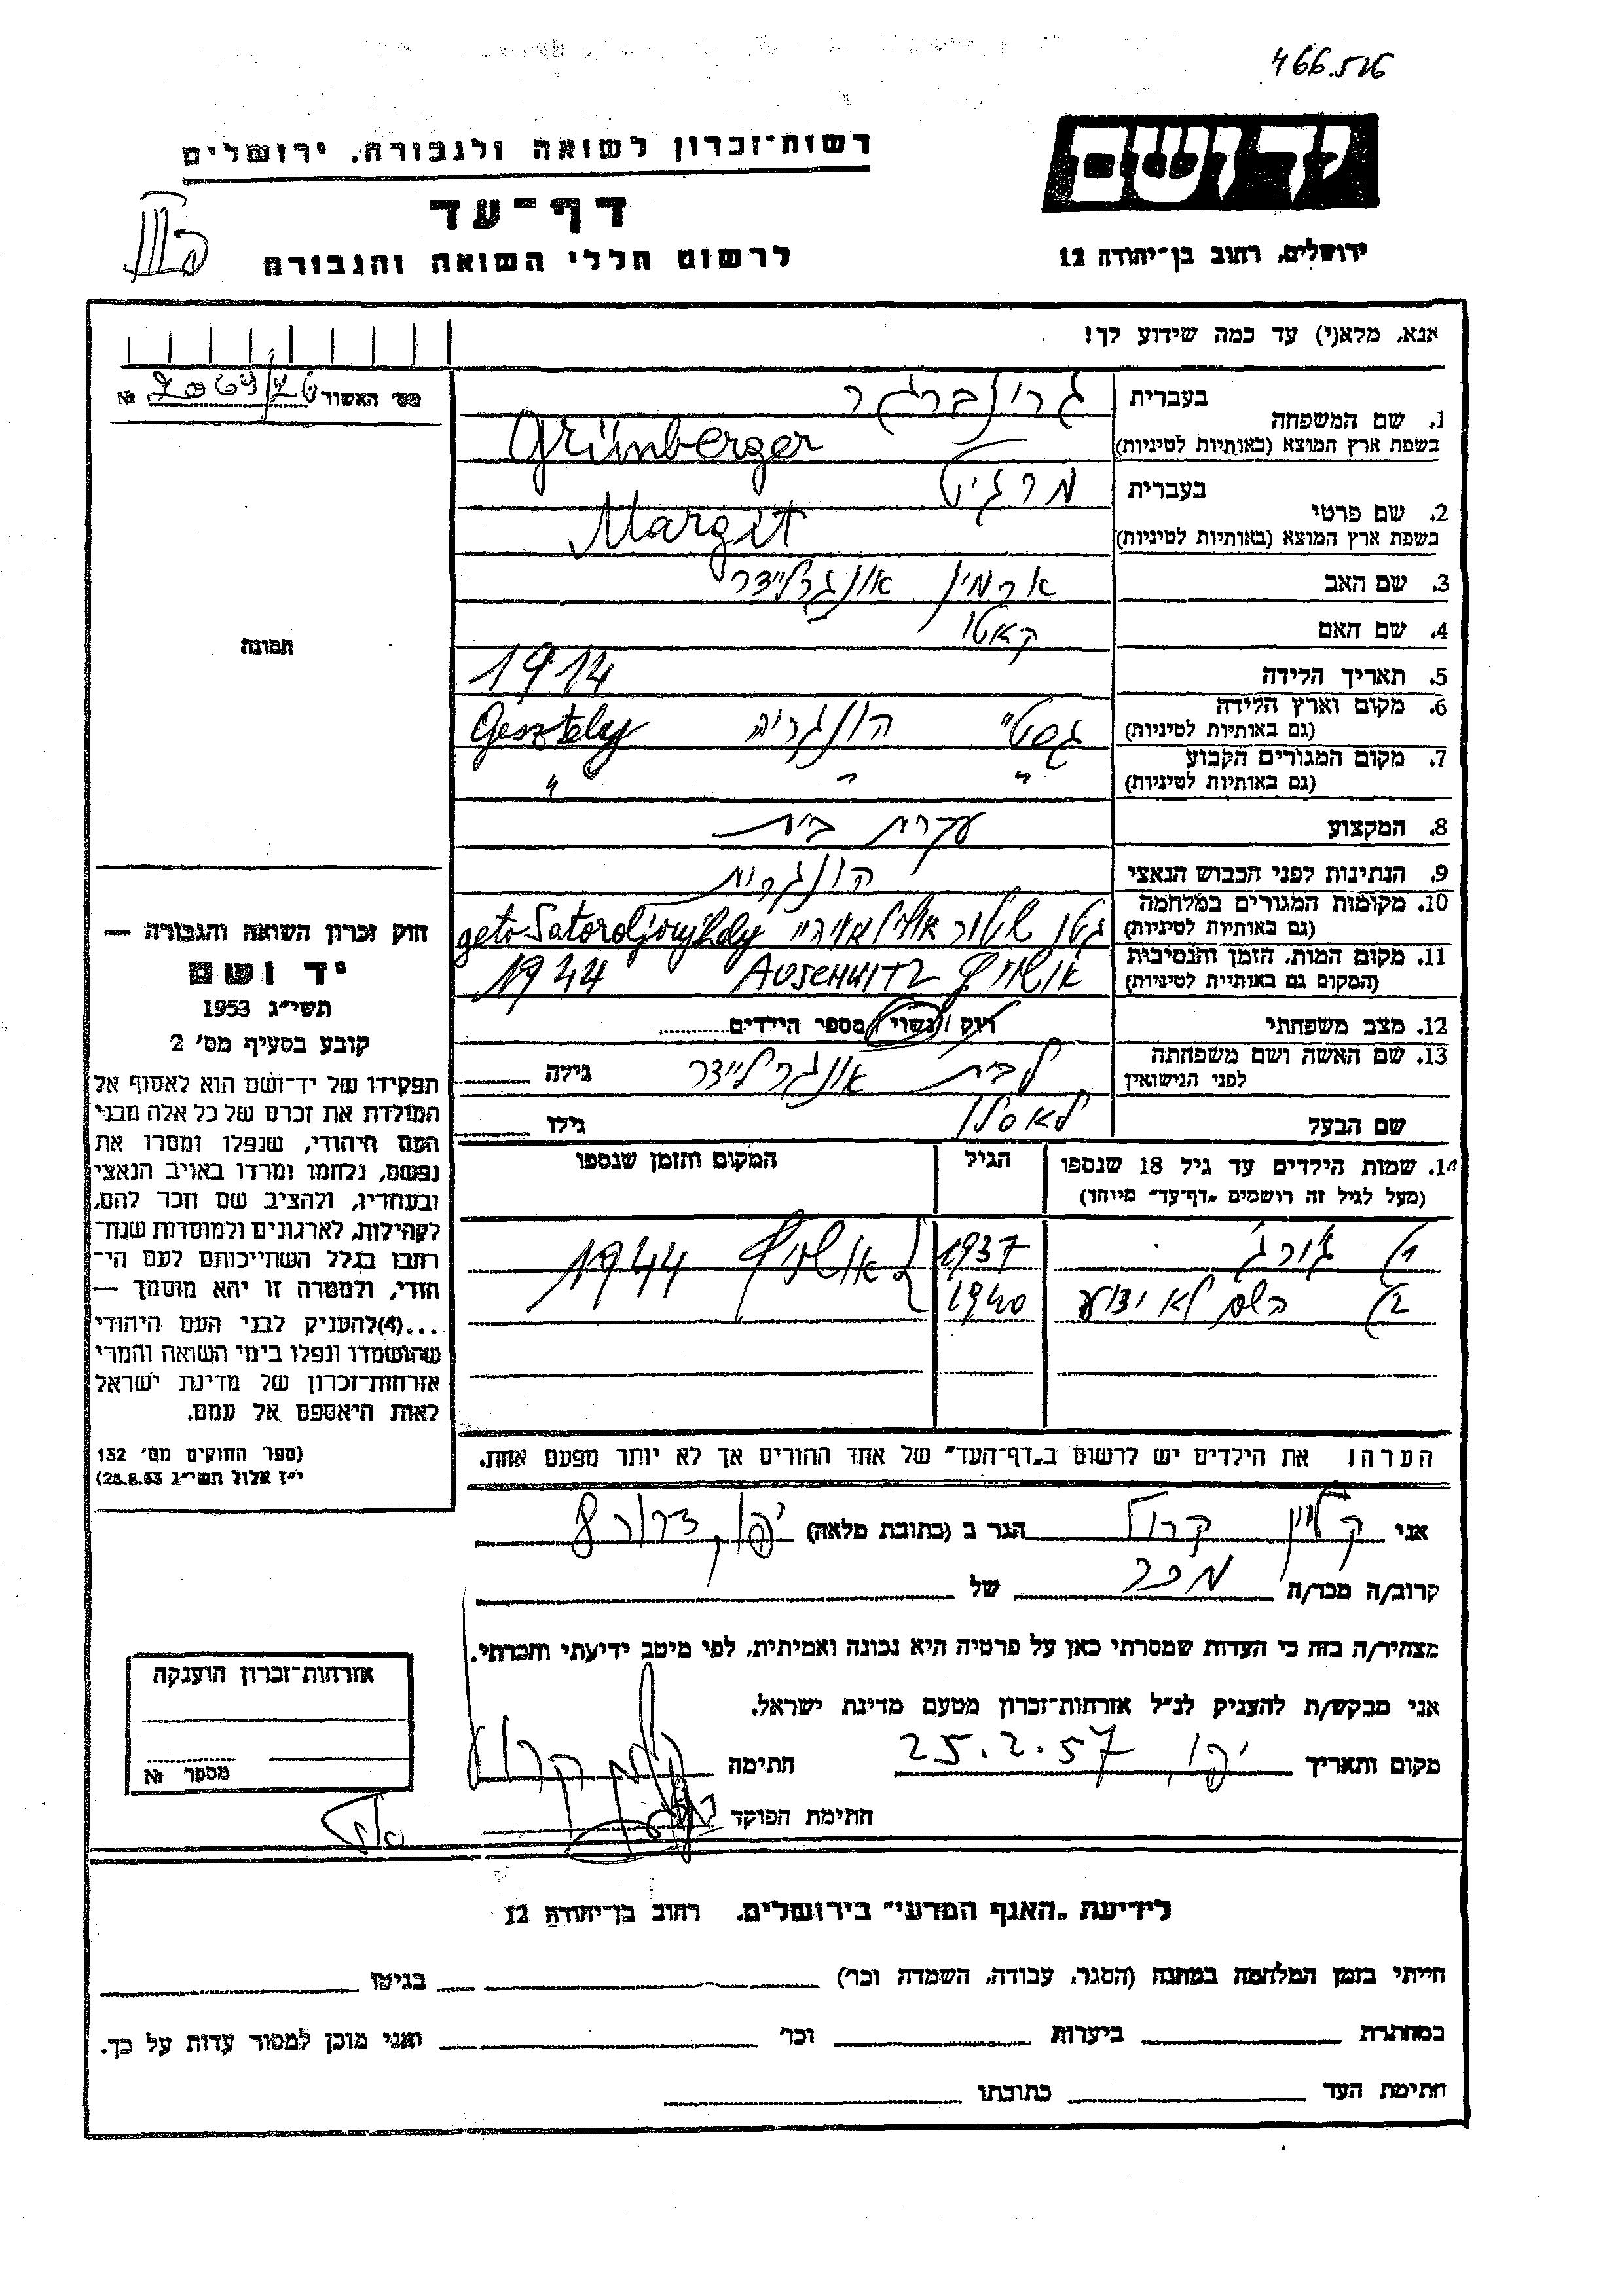 466.516
רשות־זכרון לשואה ולגבורה, ירושלים
יד ושם
דף־עד
לרשום חללי השואה והגבורה
ירושלים, רחוב בן־יהודה 12
אנא, מלא(י) עד כמה שידוע לך!
מס׳ האשור №
1. שם המשפחה
בעברית גרינברגר
בשפת ארץ המוצא (באותיות לטיניות) Grünberger
2. שם פרטי
בעברית מרגיט
בשפת ארץ המוצא (באותיות לטיניות) Margit
3. שם האב ארמין אונגרליידר
4. שם האם קאטו
תמונה
5. תאריך הלידה 1914
6. מקום וארץ הלידה (גם באותיות לטיניות) גסטלי הונגריה Gesztely
7. מקום המגורים הקבוע (גם באותיות לטיניות) " " "
8. המקצוע עקרת בית
9. הנתינות לפני הכבוש הנאצי הונגרית
10. מקומות המגורים במלחמה (גם באותיות לטיניות) גטו geto Satoroljoujhely
11. מקום המות, הזמן והנסיבות (המקום גם באותיית לטיניות) אושויץ AUSCHWITZ 1944
12. מצב משפחתי רוק / נשוי / מספר הילדים
13. שם האשה ושם משפחתה לפני הנישואין לבית אונגרליידר גילה
שם הבעל לאסלו גילו
14. שמות הילדים עד גיל 18 שנספו (מעל לגיל זה רושמים „דף־עד” מיוחד) הגיל המקום והזמן שנספו
1) ג'ורג' 1937 אושויץ 1944
2) השם לא ידוע 1940
חוק זכרון השואה והגבורה —
יד ושם
תשי״ג 1953
קובע בסעיף מס׳ 2
תפקידו של יד־ושם הוא לאסוף אל
המולדת את זכרם של כל אלה מבני
העם היהודי, שנפלו ומסרו את
נפשם, נלחמו ומרדו באויב הנאצי
ובעוזריו, ולהציב שם וזכר להם,
לקהילות, לארגונים ולמוסדות שנח־
רחבו בגלל השתייכותם לעם הי־
הודי, ולמטרה זו יהא מוסמך —
...(4)להעניק לבני העם היהודי
שהושמדו ונפלו בימי השואה והמרי
אזרחות־זכרון של מדינת ישראל
לאות היאספם אל עמם.
(ספר החוקים מס׳ 132
י״ז אלול תשי״ג 28.8.53)
הערה: את הילדים יש לרשום ב„דף־העד” של אחד ההורים אך לא יותר מפעם אחת.
אני קליין קרול הגר ב (כתובת מלאה) יפו,
קרוב/ה מכר/ה מכר של
מצהיר/ה בזה כי העדות שמסרתי כאן על פרטיה היא נכונה ואמיתית, לפי מיטב ידיעתי והכרתי.
אני מבקש/ת להעניק לנ״ל אזרחות־זכרון מטעם מדינת ישראל.
מקום ותאריך יפו, 25.2.57 חתימה קליין קרול
חתימת הפוקד
אזרחות־זכרון הוענקה
מספר №
לידיעת „האגף המדעי” בירושלים, רחוב בן־יהודה 12
הייתי בזמן המלחמה במחנה (הסגר, עבודה, השמדה וכו׳) בגיטו
במחתרת ביערות וכו׳ ואני מוכן למסור עדות על כך.
חתימת העד כתובתו